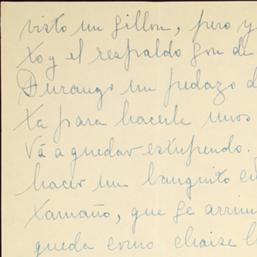 visto un sillon, pero y
to y el respaldo son de
Durango un pedazo d
ta para hacerle unos
Vá a quedar estupendo.
hacer un banquito
tamaño, que se arrim
queda como chaise l